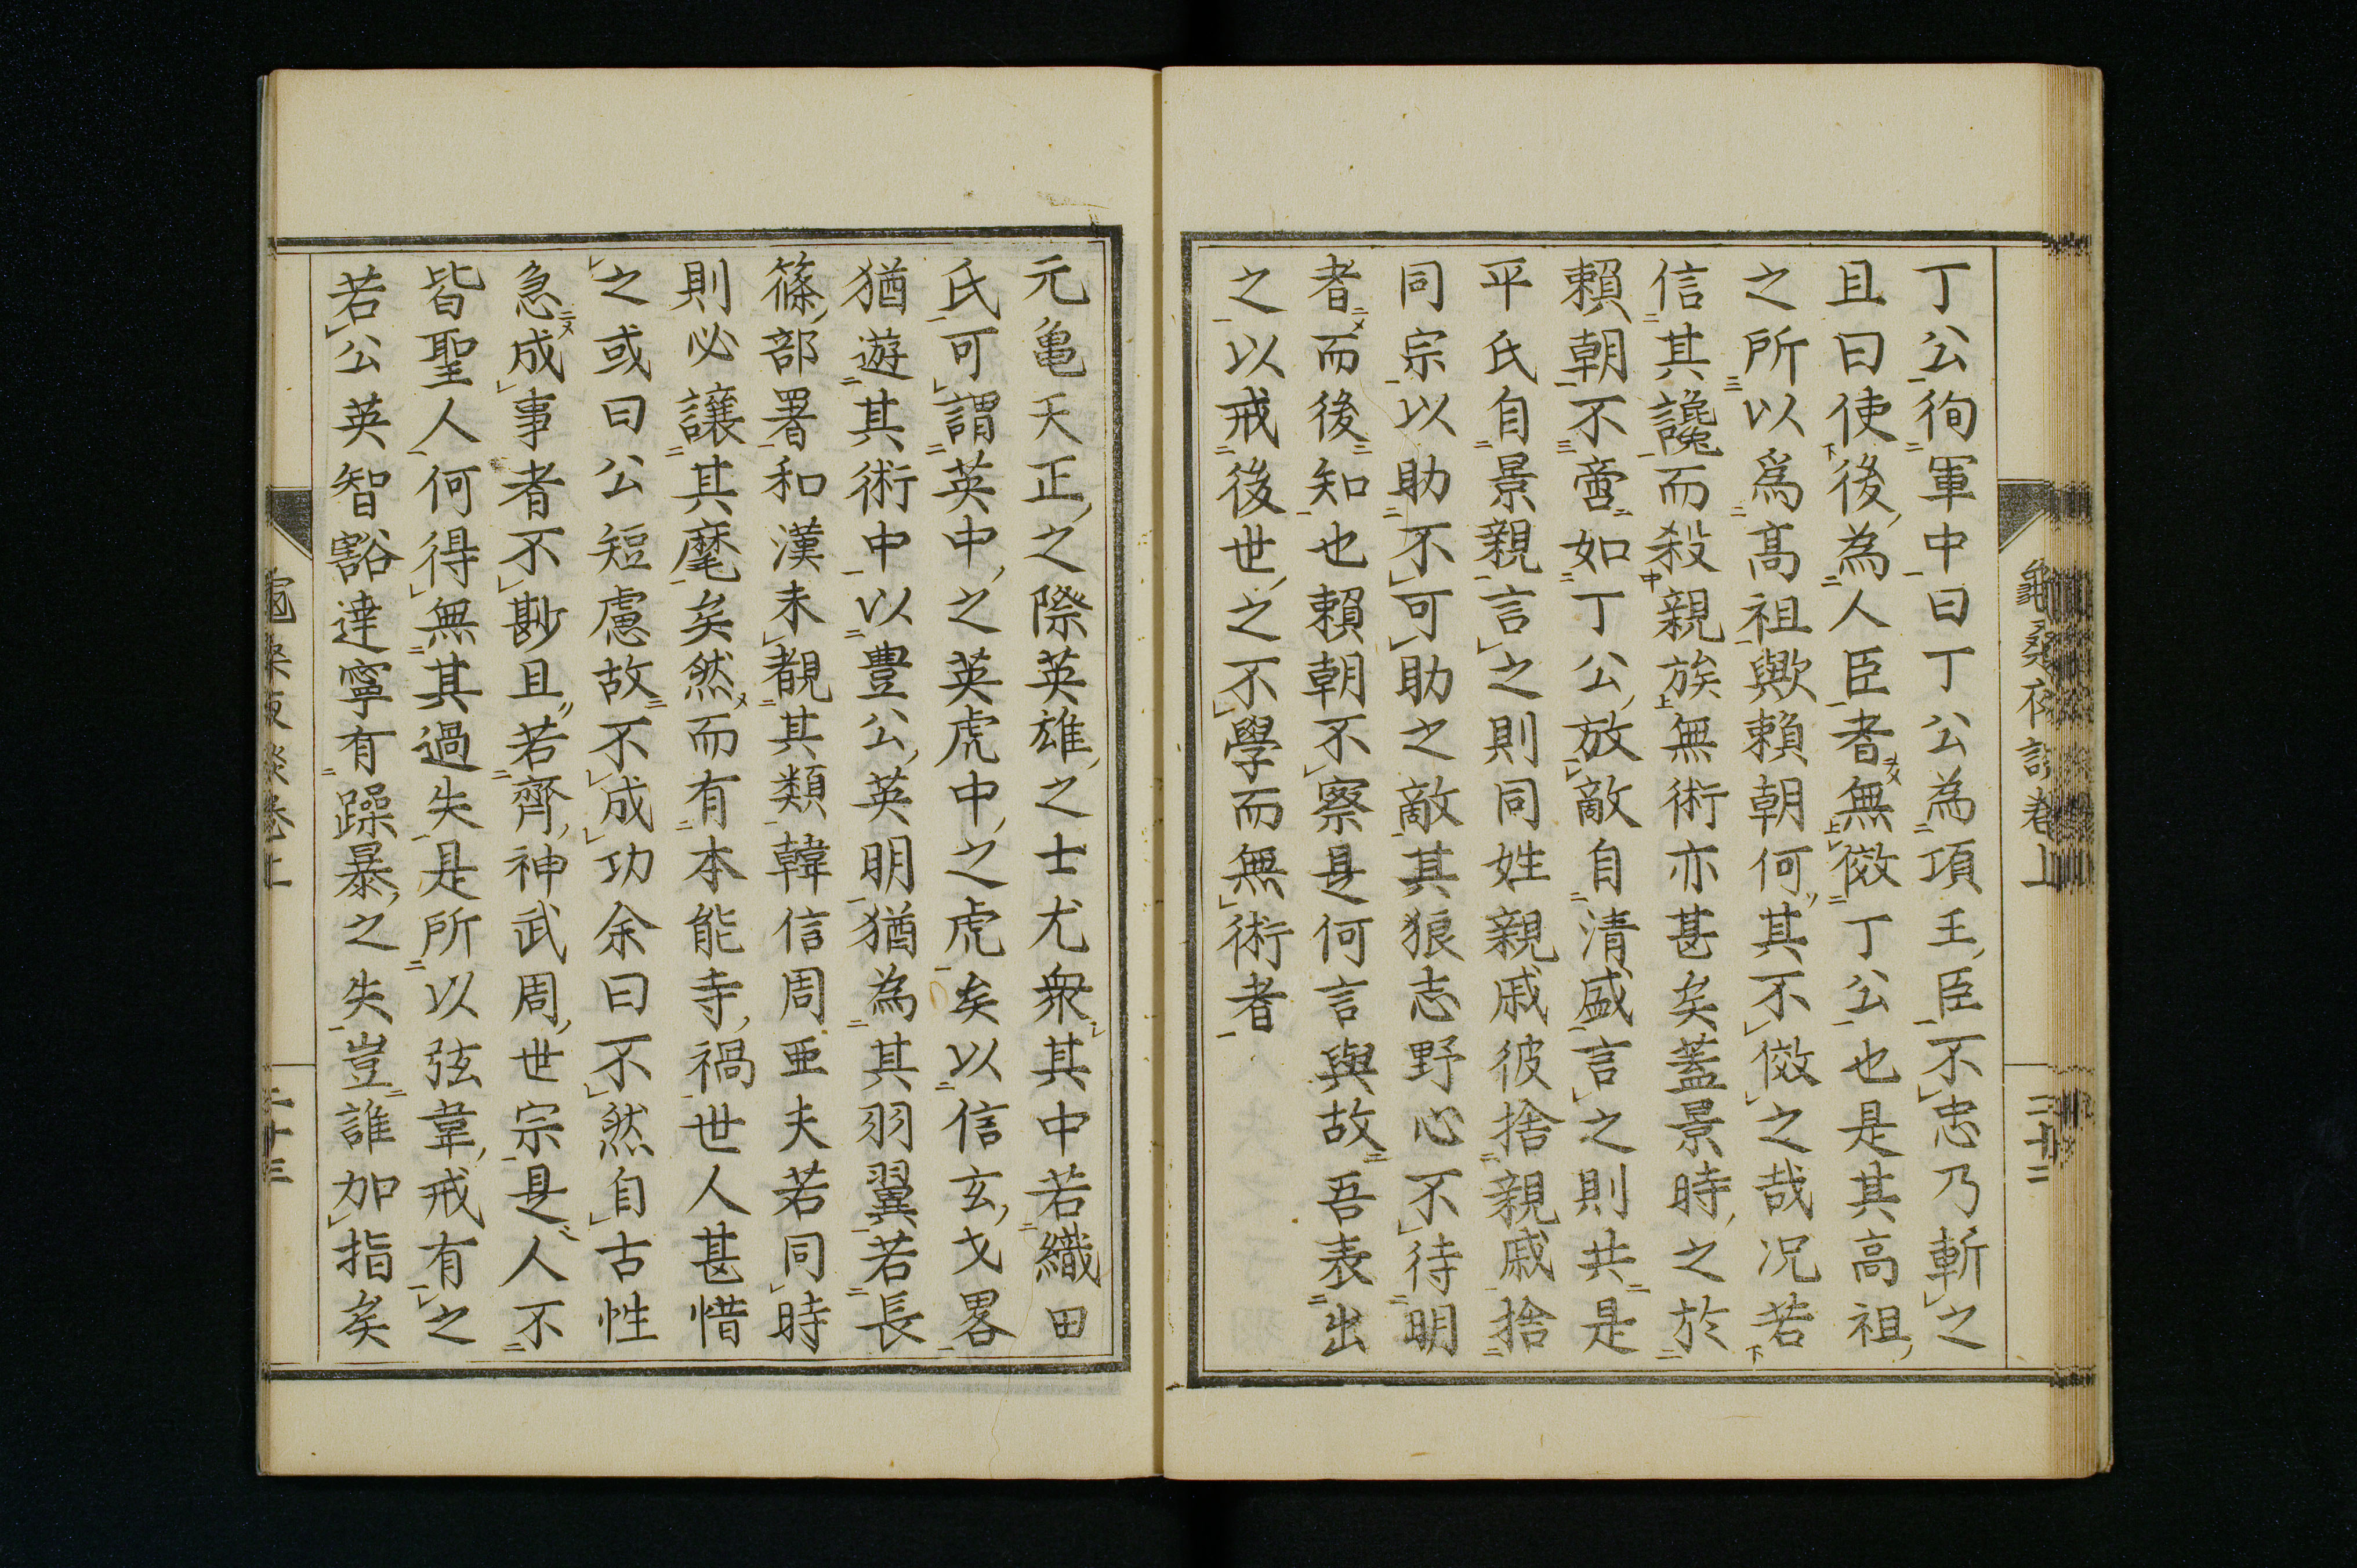 丁公徇軍中曰丁公為項王臣不忠乃斬之
且曰使後為人臣者無傚丁公也是其高祖
之所以爲高祖歟賴朝何其不傚之哉况若
信其讒而殺親族無術亦甚矣蓋景時之於
賴朝不啻如丁公放敵自清盛言之則共是
平氏自景親言之則同姓親戚彼捨親戚捨
同宗以助不可助之敵其狼志野心不待明
者而後知也賴朝不察是何言與故吾表出
之以戒後世之不學而無術者
元亀天正之際英雄之士尤衆其中若織田
氏可謂英中之英虎中之虎矣以信玄文畧
猶遊其術中以豊公英明猶為其羽翼若長
篠部署和漢未覩其類韓信周亜夫若同時
則必讓其麾矣然而有本能寺禍世人甚惜
之或曰公短慮故不成功余曰不然自古性
急成事者不尠且若齊神武周世宗是人不
皆聖人何得無其過失是所以弦韋戒有之
若公英智豁達寧有躁暴之失豈誰加指矣
二十二
二十三